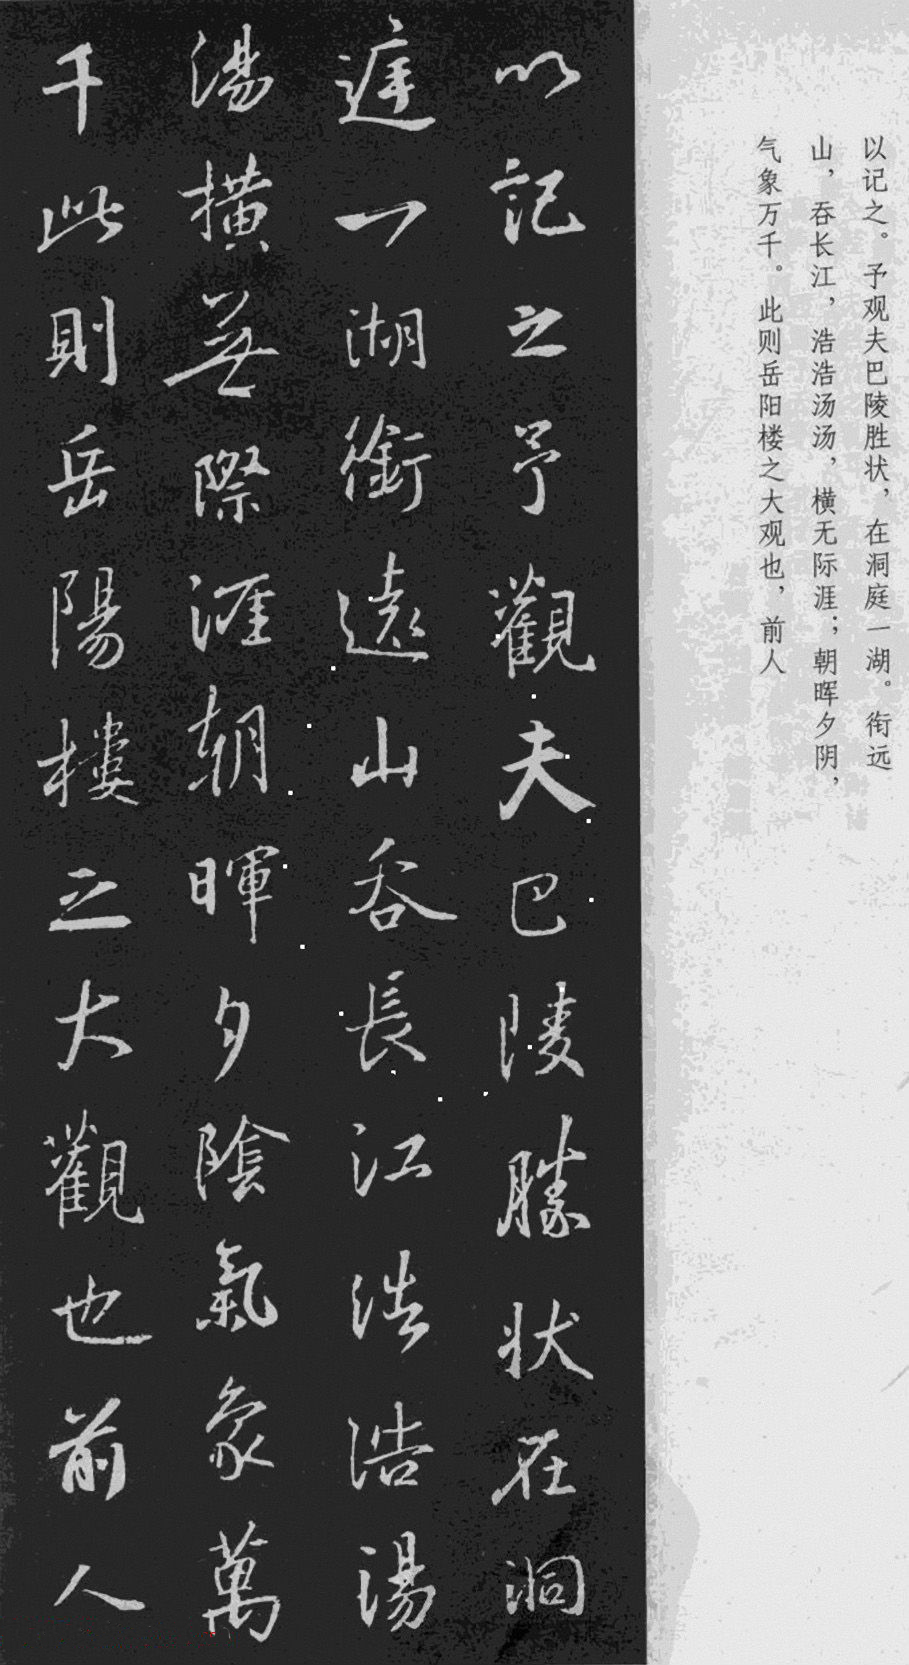 以记之。予观夫巴陵胜状，在洞庭一湖。衔远
山，吞长江，浩浩汤汤，横无际涯；朝晖夕阴，
气象万千。此则岳阳楼之大观也，前人
以記之予觀夫巴陵勝状在洞
庭一湖銜遠山吞長江浩浩湯
湯橫無際涯朝暉夕陰氣象萬
千此則岳陽樓之大觀也前人